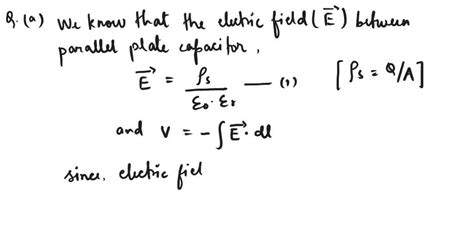 Q.(a) We know that the electric field (E⃗) between
parallel plate capacitor,
E⃗ = ρs / ε0 · εr —— (1) [ρs = Q/A]
and V = - ∫E⃗ · dl
since, electric fiel